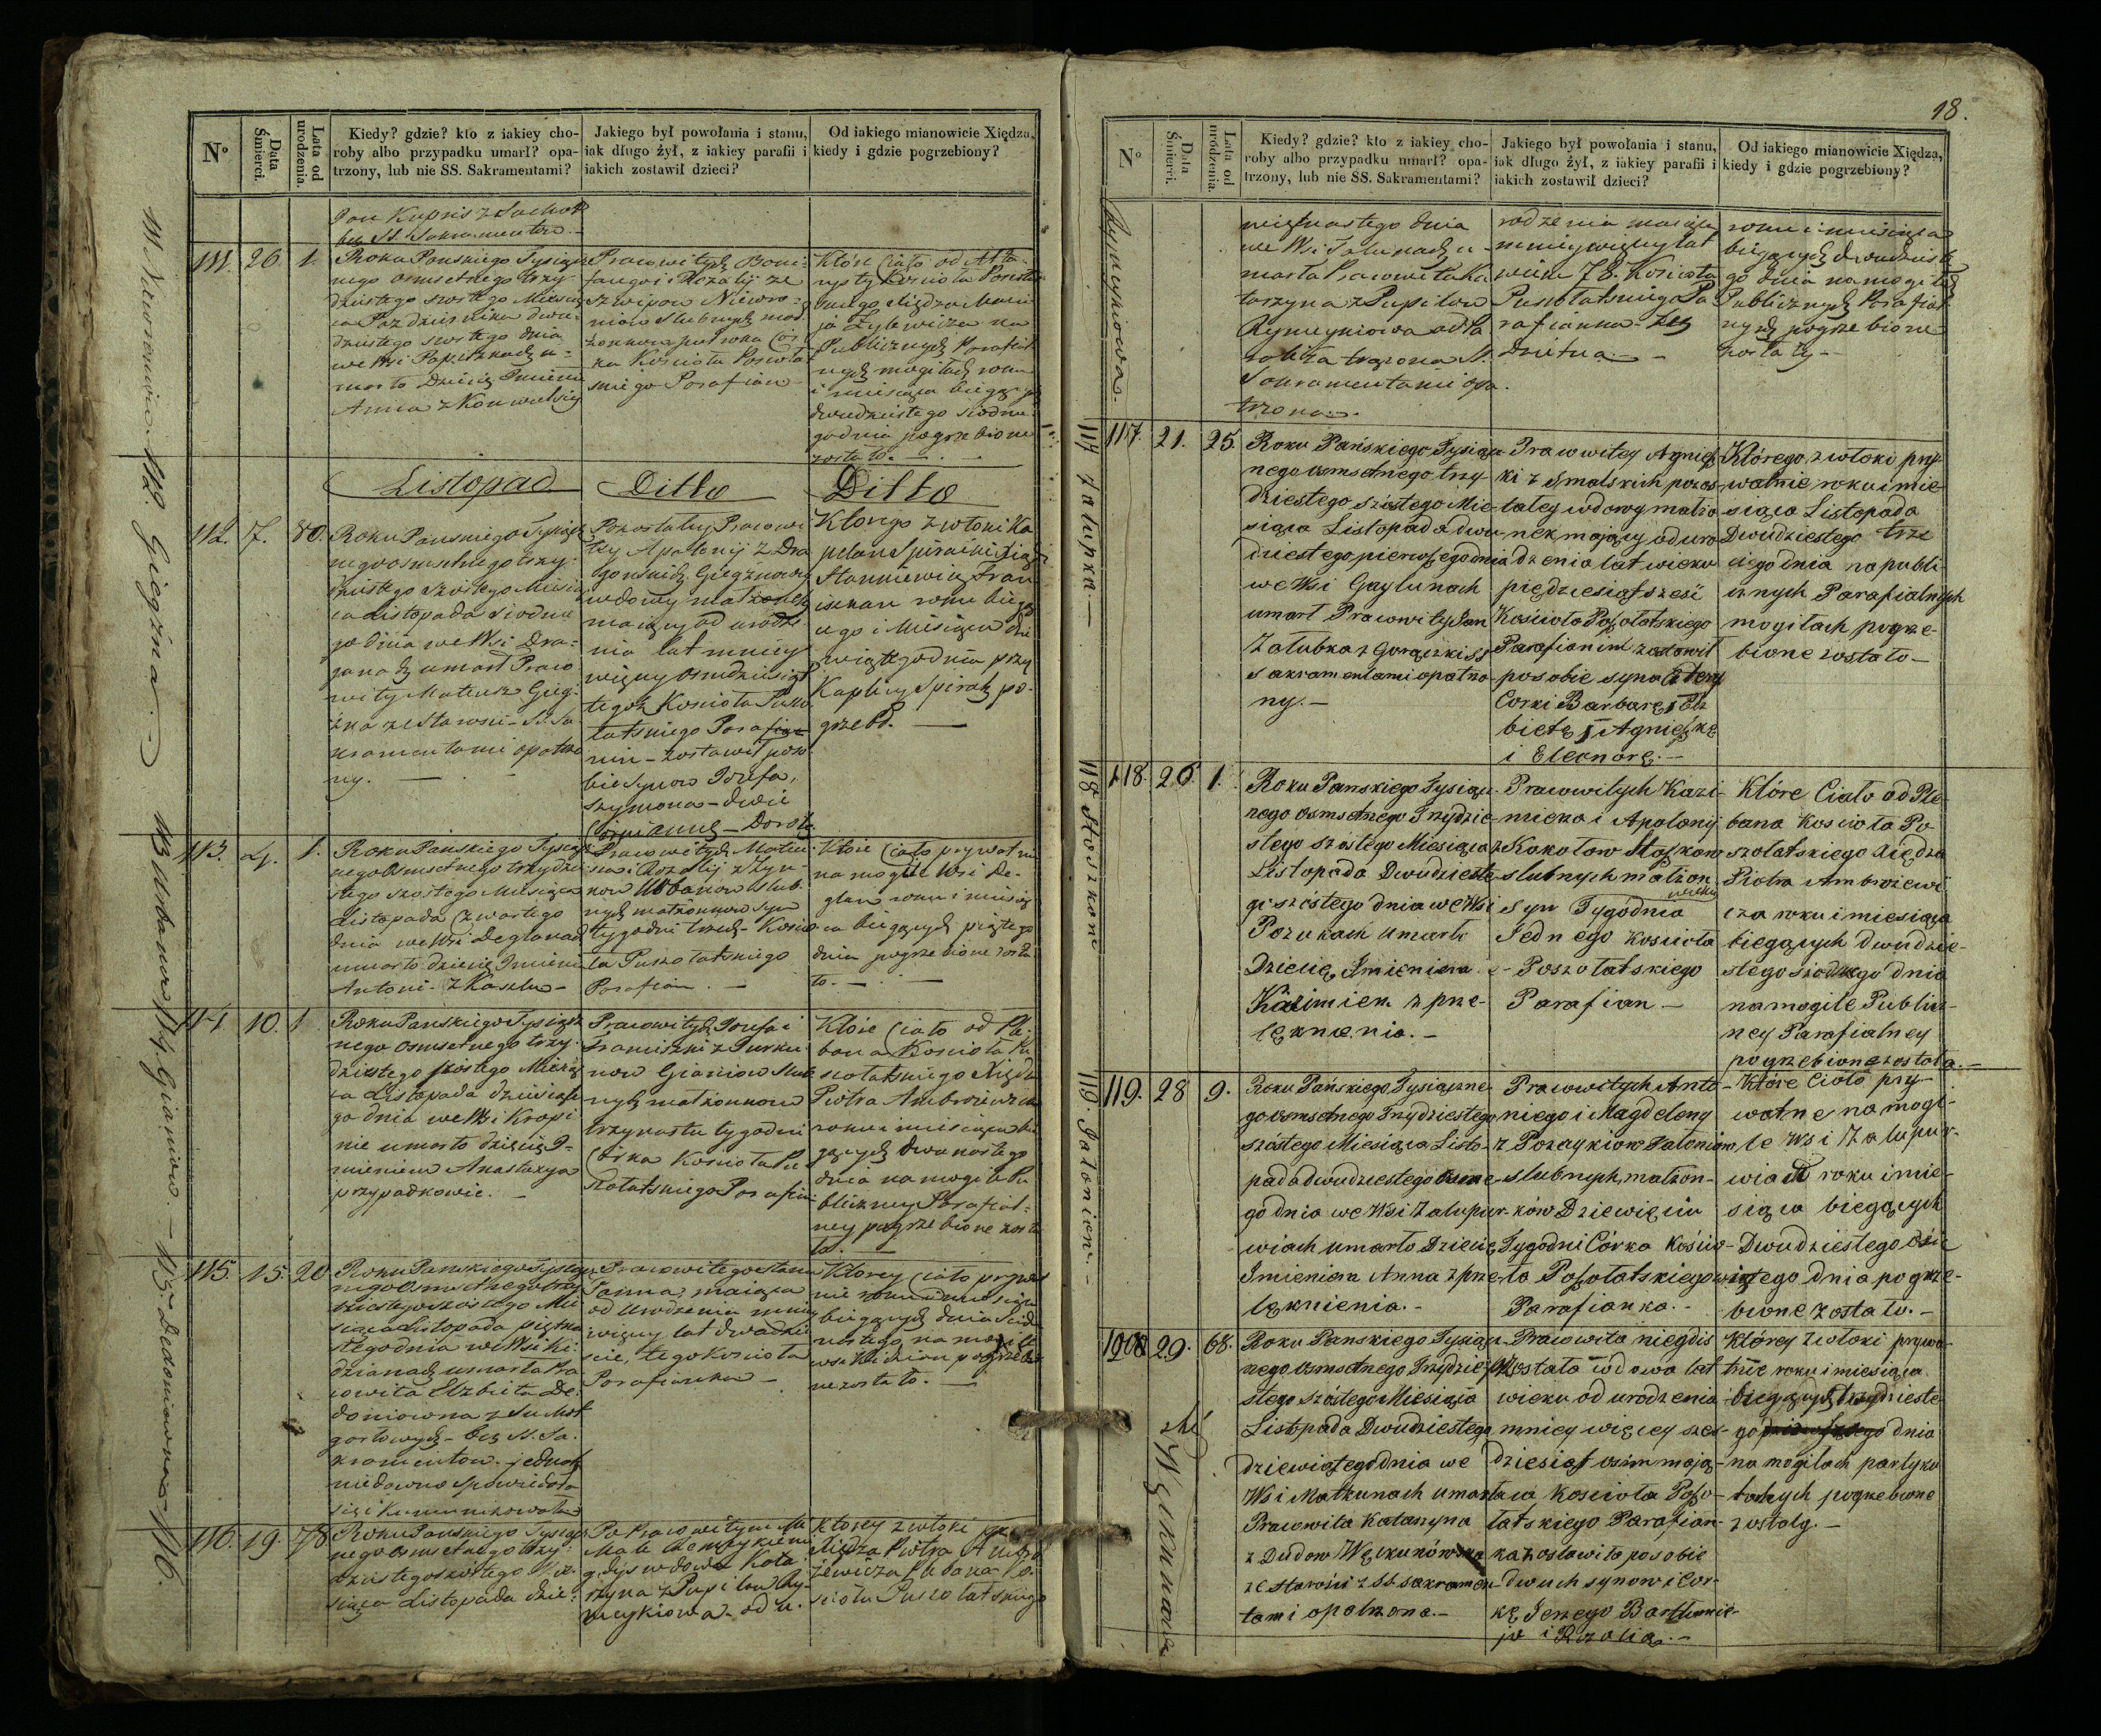 18.
Nº
Data Śmierci.
Lata od urodzenia.
Kiedy? gdzie? kto z iakiey cho-
roby albo przypadku umarł? opa-
trzony, lub nie SS. Sakramentami?
Jakiego był powołania i stanu,
iak długo żył, z iakiey parafii i
iakich zostawił dzieci?
Od iakiego mianowicie Xiędza,
kiedy i gdzie pogrzebiony?
Jan Kupris z Suchot
bez SS. Sakramentow.
111. 26 1.
Roku Panskiego Tysiącz
nego osmsetnego trzy-
dziestego szostego Miesią
ca Pazdziernika dwu-
dziestego szostego dnia
we Wsi
marło Dziecię Imieniem
Anna z Konwulsij
Pracowitych
i Rozalij ze
slubnych mał
żonkow poł roka Cor
ka Kościoła Poszołat
skiego Parafian
Któré Ciało od Alta-
rysty Kościoła Poszołat
skiego Xiędza
na
Publicznych Parafial
nych mogiłach roku
i miesiąca bieżących
dwudziestego siodme
go dnia pogrzebione
zostało.
Listopad
Ditto
Ditto
112. 7. 80.
Roku Panskiego Tysiącz
nego osmsetnego trzy-
dziestego szostego Miesią
ca Listopada siodme
go dnia we Wsi Dra-
ganach umarł Praco
wity Mateusz Gieg-
zna ze Starosci SS. Sa-
kramentami opatrzo
ny.
Pozostałey Pracowi
tey Apolonij z Dra
wdowy małżonek
maiący od urodze
nia lat mniey
więcey osmdziesiąt
tegoż Kościoła Posz
łatskiego Parafia
nin zostawił poso
bie Synow Jozefa,
Szymona dwie
Corki Annę Dorotę
Którego zwłoki Ka
pelan Xiądz
Stankiewicz Fran
ciszkan roku bieżą
cego i Miesiąca dzie
wiątego dnia przy
Kaplicy po-
grzebł.
113. 4. 1.
Roku Pańskiego Tysiącz
nego Osmsetnego trzydzie
stego szostego Miesiąca
Listopada Czwartego
dnia we Wsi Deglanach
umarło dziecię Imieniem
Antoni z Kaszlu
Pracowitych Mateu
sza i Rozalij z
now Urbanow slub-
nych małżonkow syn
tygodni trzech Kościo
ła Puszołatskiego
Parafian.
Któré Ciało prywatnie
na mogile Wsi De-
glan roku i miesią
ca bieżących piątego
dnia pogrzebione zosta
ło.
114. 10. 1
Roku Panskiego Tysiącz
nego osmsetnego trzy-
dziestego szostego Miesią
ca Listopada dziesiąte
go dnia we Wsi Kropi
nie umarło dziecię I-
mieniem Anastazya
przypadkowie.
Pracowitych Jozefa i
Franciszki z Purku
now Graniow slub
nych małżonkow
trzynastu tygodni
Corka Kościoła Pu
szołatskiego Parafian
Któré Ciało od Ple
bana Kościoła Pu
szołatskiego Xiędza
Piotra Ambrożewicza
roku i miesiąca bie
żących dwunastego
dnia na mogile Pu
bliczney Parafial-
ney pogrzebione zosta
ło.
115. 15. 20
Roku Panskiego Tysiącz
nego Osmsetnego trzy
dziestego szostego Mie
siąca Listopada piętna
stego dnia we Wsi Ki-
dzianach umarła Pra
cowita Elzbieta De-
doniowna z Suchot
gorłowych bez SS. Sa-
kramentow. jednak
niedawno spowiedała
się i Kommunikowała
Pracowitego stanu
Panna, maiąca
od Urodzenia mniey
więcey lat dwadzie
scie, tego Kościoła
Parafianka
Którey Ciało prywat
nie roku i miesiąca
bieżących dnia siedm
nastego na mogile
wsi Kidzian pogrzebio
ne zostało.
116. 19. 78
Roku Panskiego Tysiącz
nego Osmsetnego trzy-
dziestego szostego Mie-
siąca Listopada dzie-
Po Pracowitym
gdys wdowa Kata-
rzyna z Pupilow Ry-
meykiowa od u-
Którey zwłoki
Xiędza Piotra Ambro
żewicza Plebana Ko-
scioła Puszołatskiego
112 Giegzna
113 Urbanow
114. Graniow.
115 Dedoniowna
116.
więtnastego dnia
we Wsi u-
marła Pracowita Ka
tarzyna z Pupilow
Rymeykiowa od Pa
raliża trapiona SS.
Sakramentami opa
trzona.
rodzenia maiąca
mniey więcey lat
wieku 78. Kościoła
Puszołatskiego Pa
rafianka bez
Dzietna
roku i miesiąca
bieżących dwudzieste
go dnia na mogiłach
Publicznych Parafial
nych pogrzebione
zostały
Rymeykiowa.
117 Załupka
117. 21. 25.
Roku Pańskiego Tysiącz-
nego osmsetnego trzy-
dziestego szóstego Mie-
siąca Listopada dwu-
dziestego pierwszego dnia
we Wsi Gaylunach
umarł Pracowity Jan
Załubka z Gorączki SS
Sakramentami opatrzo-
ny.
Pracowitey Agniesz
ki z Smalskich pozos
tałey wdowy małżo
nek mający od uro
dzenia lat wieku
pięćdziesiąt sześć
Kościoła Poszołatskiego
Parafianin zostawił
po sobie syna cztery
Corki Barbarę, Elz
bietę, Agnieszkę
i Eleonorę.
Którego zwłoki pry-
watnie roku i mie-
siąca Listopada
Dwudziestego trze
ciego dnia na publi-
cznych Parafialnych
mogiłach pogrze-
bione zostało
118 Stoszkone
118. 26. 1.
Roku Panskiego Tysiącz-
nego osmsetnego Trzydzie-
stego szóstego Miesiąca
Listopada Dwudzieste-
go szóstego dnia we Wsi
Pozukach umarło
Dziecię Imieniem
Kazimierz z prze-
lęknienia.
Pracowitych Kazi-
mierza i Apolonij
z Kokotow Stoszkow
slubnych małżon.
syn Tygodnia wieku
Jednego Kościoła
Poszołatskiego
Parafian
Któré Ciało od Ple-
bana Kościoła Po-
szołatskiego Xiędza
Piotra Ambrożewi
cza roku i miesiąca
bieżących dwudzie-
stego siodmego dnia
na mogile Publicz-
ney Parafialney
pogrzebione zostało.
119.
119. 28 9.
Roku Pańskiego Tysiączne
go osmsetnego Trzydziestego
szóstego Miesiąca Listo-
pada dwudziestego osme-
go dnia we Wsi Załupur-
wiach umarło Dziecię
Imieniem Anna z prze-
lęknienia.
Pracowitych Anto-
niego i Magdeleny
z
slubnych małżon-
ków Dziewięciu
Tygodni Córka Kościo-
ła Poszołatskiego
Parafianka.
Któré Ciało pry-
watne na mogi-
le Wsi Załupur-
wiach roku i mie-
siąca bieżących
Dwudziestego
dnia pogrze-
bione zostało.
29. 68.
Roku Panskiego Tysiącz-
nego osmsetnego Trzydzie-
stego szóstego Miesiąca
Listopada Dwudziestego
dziewiątego dnia we
Wsi Matkunach umarła
Pracowita Katarzyna
z Dudow Węckunówska
ze Starości z SS. Sakramen-
tami opatrzona.
Pracowita niegdis
pozostała wdowa lat
wieku od urodzenia
mniey więcey szes-
dziesiąt osim mają-
ca Kościoła Poszo-
łatskiego Parafian-
ka zostawiła po sobie
dwuch synow i Cor-
kę Jerzego Bartłomie-
ja i Rozalią.
Którey zwłoki prywa-
tnie roku i miesiąca
bieżących trzydzieste-
go dnia
na mogiłach partyku
larnych pogrzebione
zostały.
Węckunowa